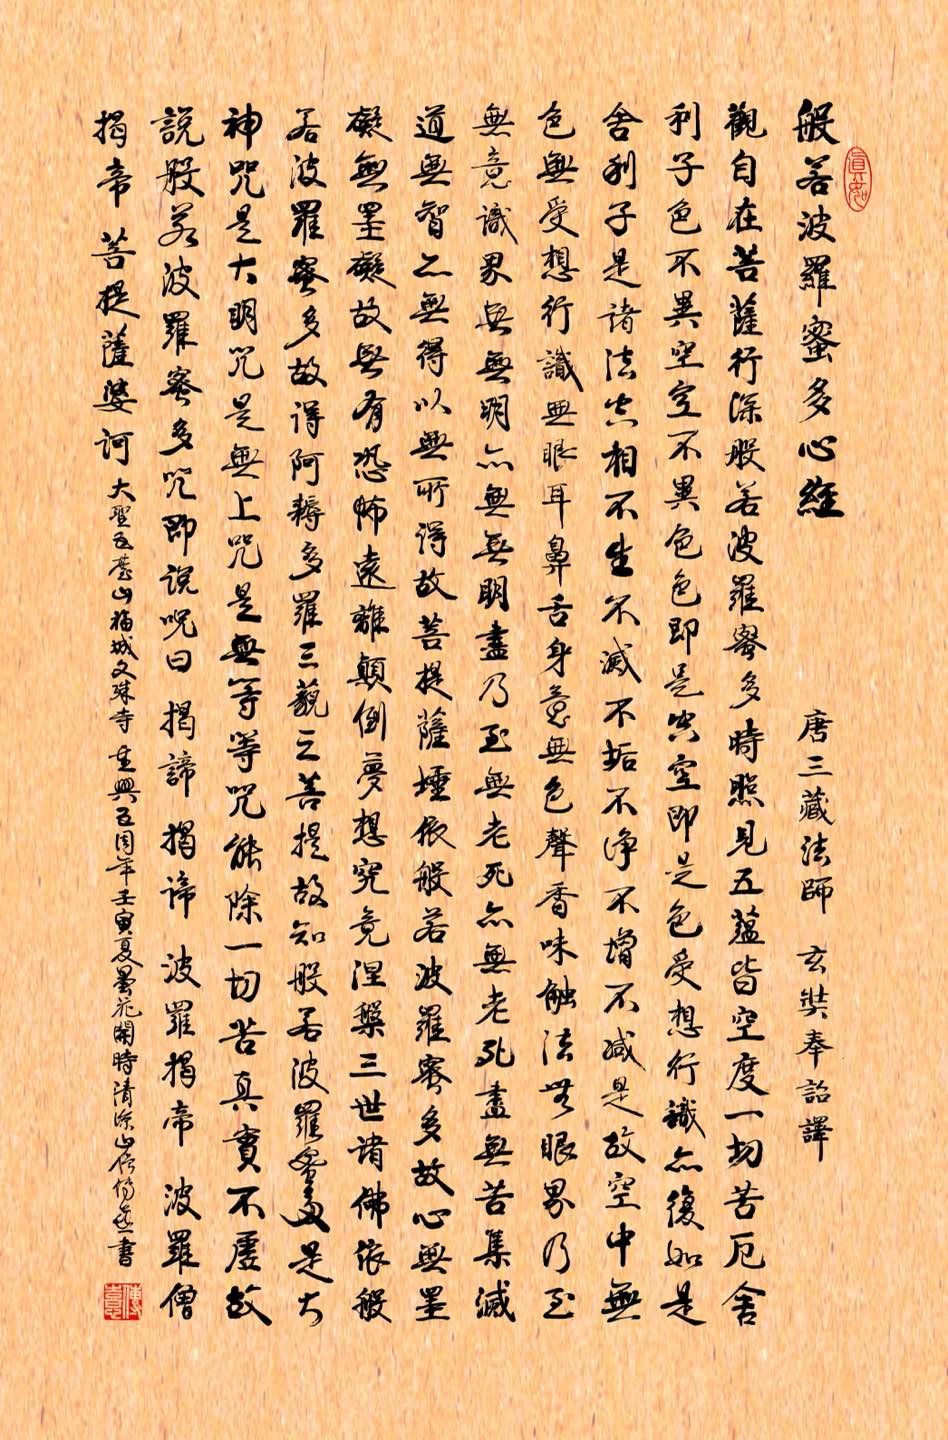 眞如
般若波羅蜜多心經 唐三藏法師 玄奘奉詔譯
觀自在菩薩行深般若波羅蜜多時照見五蘊皆空度一切苦厄舍
利子色不異空空不異色色即是空空即是色受想行識亦復如是
舍利子是諸法空相不生不滅不垢不淨不增不減是故空中無
色無受想行識無眼耳鼻舌身意無色聲香味触法無眼界乃至
無意識界無無明亦無無明盡乃至無老死亦無老死盡無苦集滅
道無智亦無得以無所得故菩提薩埵依般若波羅蜜多故心無罣
礙無罣礙故無有恐怖遠離顛倒夢想究竟涅槃三世諸佛依般
若波羅蜜多故得阿耨多羅三藐三菩提故知般若波羅蜜多是大
神咒是大明咒是無上咒是無等等咒能除一切苦真實不虛故
說般若波羅蜜多咒即說呪曰 揭諦揭諦 波羅揭帝 波羅僧
揭帝 菩提薩婆訶 大聖五臺山福城文殊寺重興五周年壬寅夏曇花開時清涼山居傅意書
傅意